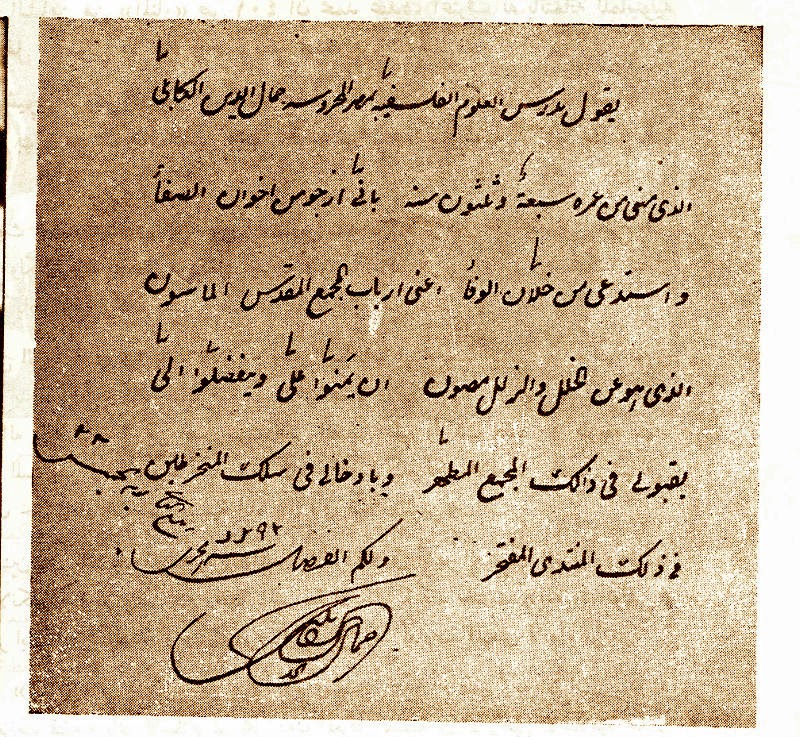 يقول مدرس العلوم الفلسفية بمصر المحروسه جمال الدين الكابلى
الذى مضى من عمره سبعة وثلثون سنه بانّى ارجو من اخوان الصفأ
و استدعى من خلان الوفأ اعنى ارباب المجمع المقدس الماسون
الذى هو عن الخلل والزلل مصون ان يمنوا على ويتفضلوا الى
بقبولى فى ذلك المجمع المطهر وبادخالى فى سلك المنخرطين
فى ذلك المنتدى المفتخر ولكم الفضل
يوم الخميس ٢٢
ربيع الثانى
١٢٩٢
جمال الدين